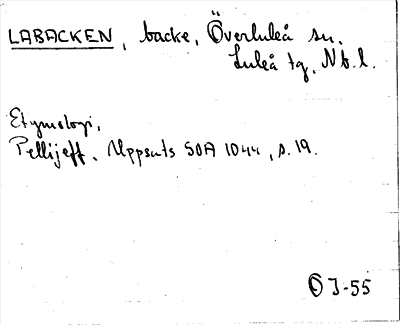 LABACKEN, backe, Överluleå sn.
Luleå tg, Nb. l.
Etymologi,
Pellijeff, Uppsats SOA 1044, s. 19.
Ö J-55